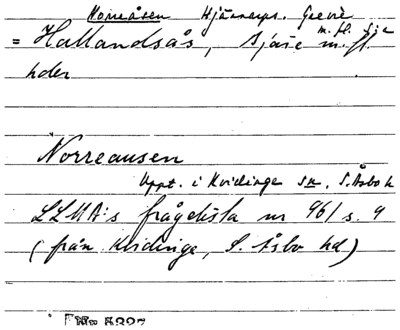 Norreåsen Hjärnarps. Grevie
= Hallandsås, Bjäre m. fl.
hder
Norreausen
Uppt. i Kvidinge sn, S. Åsbo h
LLMA:s frågelista nr 96/ s. 9
(från Kvidinge, S. Åsbo hd)